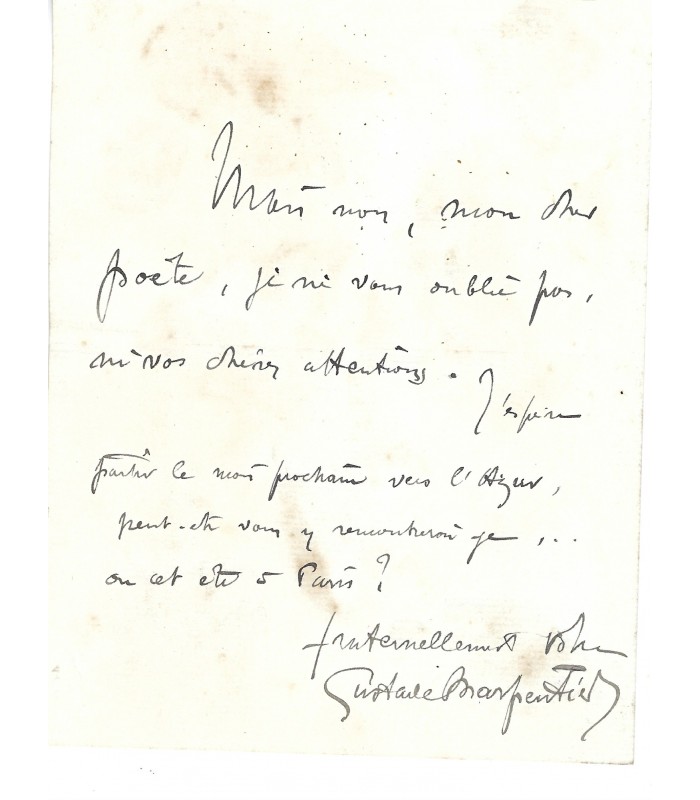 Mais non, mon cher
poète, je ne vous oublie pas,
ni vos chères attentions.
J'espère
partir le mois prochain vers l'Azur,
peut-être vous y rencontrerai-je...
ou cet été à Paris ?
fraternellement votre
Gustave Charpentier